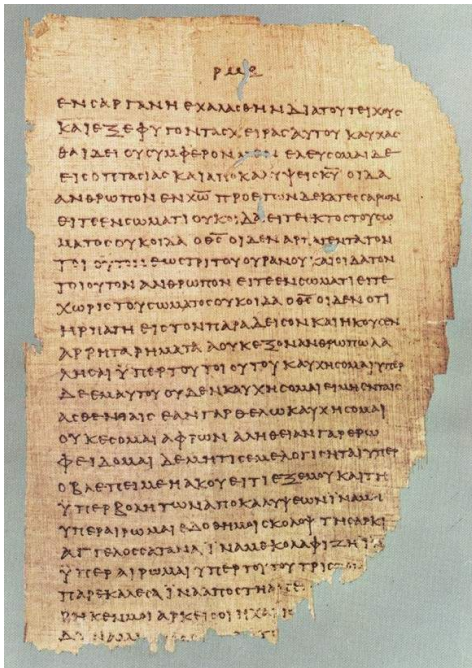 ΡΜΘ
ΕΝϹΑΡΓΑΝΗΕΧΑΛΑϹΘΗΝΔΙΑΤΟΥΤΕΙΧΟΥϹ
ΚΑΙΕΞΕΦΥΓΟΝΤΑϹΧΕΙΡΑϹΑΥΤΟΥΚΑΥΧΑϹ
ΘΑΙΔΕΙΟΥϹΥΜΦΕΡΟΝΜΕΝΕΛΕΥϹΟΜΑΙΔΕ
ΕΙϹΟΠΤΑϹΙΑϹΚΑΙΑΠΟΚΑΛΥΨΕΙϹΚ̅Υ̅ΟΙΔΑ
ΑΝΘΡΩΠΟΝΕΝΧ̅Ω̅ΠΡΟΕΤΩΝΔΕΚΑΤΕϹϹΑΡΩΝ
ΕΙΤΕΕΝϹΩΜΑΤΙΟΥΚΟΙΔΑΕΙΤΕΙΚΤΟϹΤΟΥϹΩ
ΜΑΤΟϹΟΥΚΟΙΔΑΟΘ̅Ϲ̅ΟΙΔΕΝΑΡΠΑΓΕΝΤΑΤΟΝ
ΤΟΙΟΥΤΟΝΕΩϹΤΡΙΤΟΥΟΥΡΑΝΟΥΚΑΙΟΙΔΑΤΟΝ
ΤΟΙΟΥΤΟΝΑΝΘΡΩΠΟΝΕΙΤΕΕΝϹΩΜΑΤΙΕΙΤΕ
ΧΩΡΙϹΤΟΥϹΩΜΑΤΟϹΟΥΚΟΙΔΑΟΘ̅Ϲ̅ΟΙΔΕΝΟΤΙ
ΗΡΠΑΓΗΕΙϹΤΟΝΠΑΡΑΔΕΙϹΟΝΚΑΙΗΚΟΥϹΕΝ
ΑΡΡΗΤΑΡΗΜΑΤΑΑΟΥΚΕΞΟΝΑΝΘΡΩΠΩΛΑ
ΛΗϹΑΙΫΠΕΡΤΟΥΤΟΙΟΥΤΟΥΚΑΥΧΗϹΟΜΑΙΥΠΕΡ
ΔΕΕΜΑΥΤΟΥΟΥΔΕΝΚΑΥΧΗϹΟΜΑΙΕΙΜΗΕΝΤΑΙϹ
ΑϹΘΕΝΙΑΙϹΕΑΝΓΑΡΘΕΛΩΚΑΥΧΗϹΟΜΑΙ
ΟΥΚΕϹΟΜΑΙΑΦΡΩΝΑΛΗΘΕΙΑΝΓΑΡΕΡΩ
ΦΕΙΔΟΜΑΙΔΕΜΗΤΙϹΕΜΕΛΟΓΙϹΗΤΑΙΥΠΕΡ
ΟΒΛΕΠΕΙΜΕΗΑΚΟΥΕΙΤΙΕΞΕΜΟΥΚΑΙΤΗ
ΫΠΕΡΒΟΛΗΤΩΝΑΠΟΚΑΛΥΨΕΩΝΙΝΑΜΗ
ΥΠΕΡΑΙΡΩΜΑΙΕΔΟΘΗΜΟΙϹΚΟΛΟΨΤΗϹΑΡΚΙ
ΑΓΓΕΛΟϹϹΑΤΑΝΑΪΝΑΜΕΚΟΛΑΦΙΖΗΙΝΑ
ΫΠΕΡΑΙΡΩΜΑΙΥΠΕΡΤΟΥΤΟΥΤΡΙϹ
ΠΑΡΕΚΑΛΕϹΑΙΝΑΑΠΟϹΤΗΑΠ
ΡΗΚΕΝΜΟΙΑΡΚΕΙϹΟΙΗΧΑΡΙϹ
ΔΥΝΑΜ